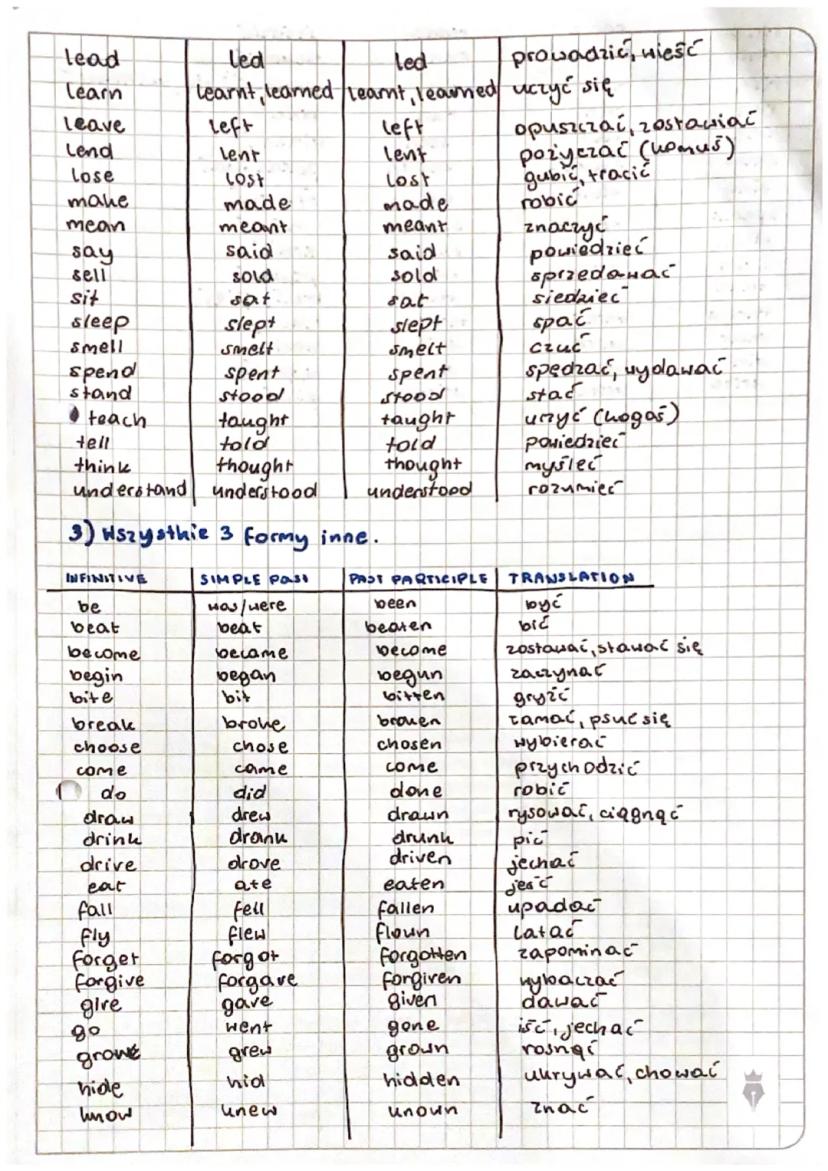 lead led led prowadzić, nieść
learn learnt, learned learnt, learned uczyć się
leave left left opuszczać, zostawiać
lend lent lent pożyczać (komuś)
lose lost lost gubić, tracić
make made made robić
mean meant meant znaczyć
say said said powiedzieć
sell sold sold sprzedawać
sit sat sat siedzieć
sleep slept slept spać
smell smelt smelt czuć
spend spent spent spędzać, wydawać
stand stood stood stać
teach taught taught uczyć (kogoś)
tell told told powiedzieć
think thought thought myśleć
understand understood understood rozumieć
3) Wszystkie 3 formy inne.
INFINITIVE SIMPLE PAST PAST PARTICIPLE TRANSLATION
be was/were been być
beat beat beaten bić
become became become zostawać, stawać się
begin began begun zaczynać
bite bit bitten gryźć
break broke broken łamać, psuć się
choose chose chosen wybierać
come came come przychodzić
do did done robić
draw drew drawn rysować, ciągnąć
drink drank drunk pić
drive drove driven jechać
eat ate eaten jeść
fall fell fallen upadać
fly flew flown latać
forget forgot forgotten zapominać
forgive forgave forgiven wybaczać
give gave given dawać
go went gone iść, jechać
grow grew grown rosnąć
hide hid hidden ukrywać, chować
know knew known znać